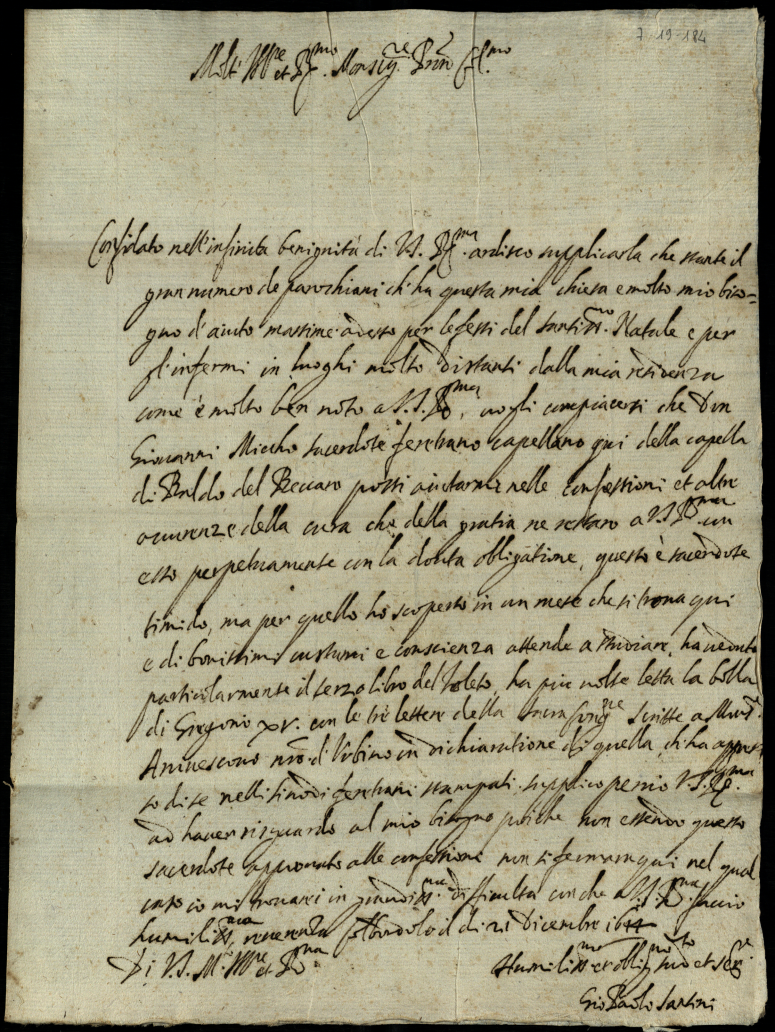 7-19-184
Molt' Ill.re et R.mo Monsig.re Pron Col.mo
Confidato nell'infinita benignità di V.S. R.ma ardisco supplicarla che stante il
gran numero de parochiani ch'ha questa mia chiesa e molto mio biso=
gno d'aiuto massime adesso per le feste del santiss.mo Natale e per
gl'infermi in luoghi molto distanti dalla mia residenza
come è molto ben noto a V.S. R.ma, vogli compiacersi che Don
Giovanni Miccho sacerdote feretrano capellano qui della capella
di Baldo del Beccaro possi aiutarmi nelle confessioni et altre
occurrenze della cura che della gratia ne restaro a V.S. R.ma un
esso perpetuamente con la douta obligatione, questo è sacerdote
timido, ma per quello ho scoperto in un mese che si trova qui
e di bonissimi custumi e conscienza attende a studiare, ha veduto
particularmente il terzo libro del Toleto, ha più volte letta la bolla
di Gregorio XV. con le tre lettere della sacra scritte a Mons.r
Arcivescovo nro d'Urbino in dichiaratione di quella, ch'ha
so di se nelli sinodi feretrani stampati. supplico percio V.S. R.ma
ad haver risguardo al mio bisogno poiche non essendo questo
sacerdote approvato alle confessione non si fermara qui nel qual
caso io mi trovarei in grandiss.ma difficulta con che a V.S. R.ma faccio
humiliss.ma reverenza li di 21 Dicembre 1644
Di V.S. M. Ill.re et R.ma
Humiliss.mo et oblig.mo sudto et ser.re
Gio Paolo Santini